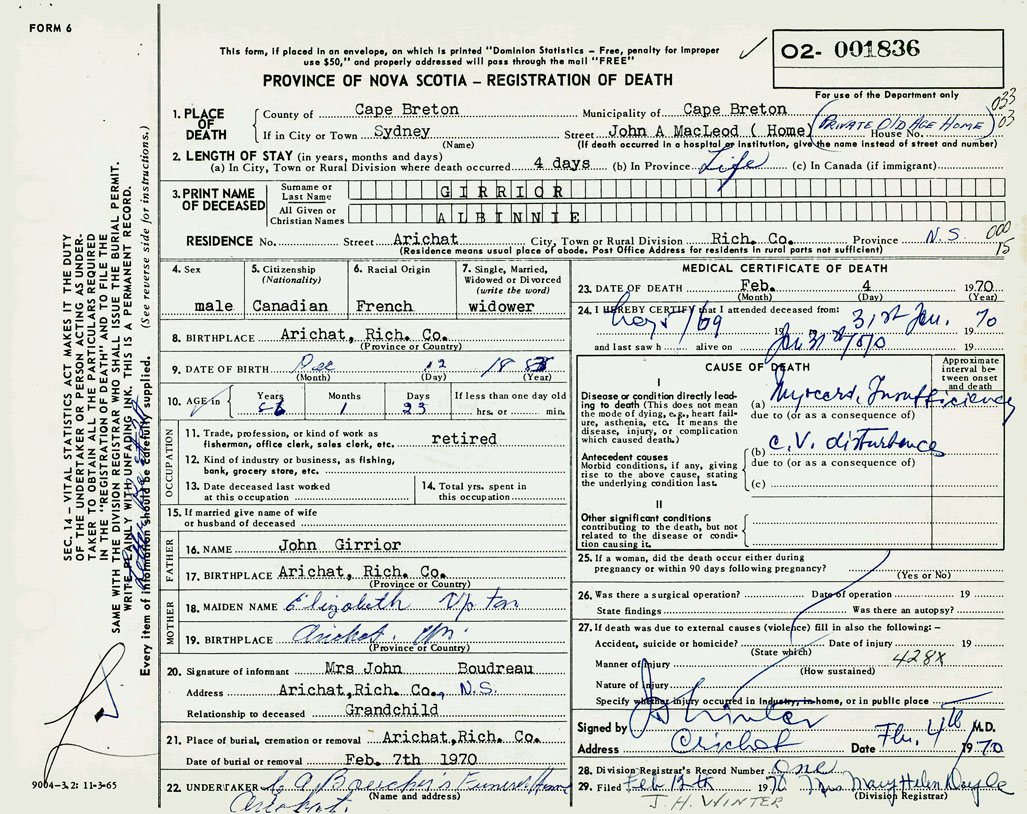 FORM 6
This form, if placed in an envelope, on which is printed "Dominion Statistics – Free, penalty for improper
use $50," and properly addressed will pass through the mail "FREE"
O2- 001836
PROVINCE OF NOVA SCOTIA – REGISTRATION OF DEATH
For use of the Department only
033
03
1. PLACE OF DEATH
County of Cape Breton Municipality of Cape Breton
If in City or Town Sydney Street John A MacLeod ( Home) (PRIVATE OLD AGE HOME) House No.
(Name) (If death occurred in a hospital or institution, give the name instead of street and number)
2. LENGTH OF STAY (in years, months and days)
(a) In City, Town or Rural Division where death occurred 4 days (b) In Province Life (c) In Canada (if immigrant)
3. PRINT NAME OF DECEASED
Surname or Last Name GIRRIOR
All Given or Christian Names ALBINNIE
RESIDENCE No. Street Arichat City, Town or Rural Division Rich. Co. Province N.S.
000
15
(Residence means usual place of abode. Post Office Address for residents in rural parts not sufficient)
4. Sex male
5. Citizenship (Nationality) Canadian
6. Racial Origin French
7. Single, Married, Widowed or Divorced (write the word) widower
8. BIRTHPLACE Arichat, Rich. Co.
(Province or Country)
9. DATE OF BIRTH Dec 12
(Month) (Day) (Year)
10. AGE in Years 86 Months 1 Days 23 If less than one day old hrs. or min.
OCCUPATION
11. Trade, profession, or kind of work as fisherman, office clerk, sales clerk, etc. retired
12. Kind of industry or business, as fishing, bank, grocery store, etc.
13. Date deceased last worked at this occupation
14. Total yrs. spent in this occupation
15. If married give name of wife or husband of deceased
FATHER
16. NAME John Girrior
17. BIRTHPLACE Arichat, Rich. Co.
(Province or Country)
MOTHER
18. MAIDEN NAME Elizabeth
19. BIRTHPLACE Arichat.
(Province or Country)
20. Signature of informant Mrs John Boudreau
Address Arichat,Rich. Co., N.S.
Relationship to deceased Grandchild
21. Place of burial, cremation or removal Arichat,Rich. Co.
Date of burial or removal Feb. 7th 1970
22. UNDERTAKER C A Boucher's Funeral Home
(Name and address)
Arichat.
MEDICAL CERTIFICATE OF DEATH
23. DATE OF DEATH Feb. 4 1970
(Month) (Day) (Year)
24. I HEREBY CERTIFY that I attended deceased from:
/69 31st Jan. 1970
and last saw h alive on Jan 31st 19
CAUSE OF DEATH
Approximate interval between onset and death
I
Disease or condition directly leading to death (This does not mean the mode of dying, e.g., heart failure, asthenia, etc. It means the disease, injury, or complication which caused death.)
(a) Myocard. Insufficiency
due to (or as a consequence of)
Antecedent causes
Morbid conditions, if any, giving rise to the above cause, stating the underlying condition last.
(b) C.V. disturbance
due to (or as a consequence of)
(c)
II
Other significant conditions
contributing to the death, but not related to the disease or condition causing it.
25. If a woman, did the death occur either during pregnancy or within 90 days following pregnancy?
(Yes or No)
26. Was there a surgical operation? Date of operation 19
State findings Was there an autopsy?
27. If death was due to external causes (violence) fill in also the following:–
Accident, suicide or homicide? Date of injury 19
(State which)
Manner of injury 428X
(How sustained)
Nature of injury
Specify whether injury occurred in industry, in home, or in public place
Signed by J H Winter M.D.
Address Arichat Date Feb. 4th 1970
28. Division Registrar's Record Number One
29. Filed Feb 12th 1970 Mrs Mary Helen Doyle
(Division Registrar)
J.H. WINTER
SEC. 14 – VITAL STATISTICS ACT MAKES IT THE DUTY
OF THE UNDERTAKER OR PERSON ACTING AS UNDER-
TAKER TO OBTAIN ALL THE PARTICULARS REQUIRED
IN THE "REGISTRATION OF DEATH" AND TO FILE THE
SAME WITH THE DIVISION REGISTRAR WHO SHALL ISSUE THE BURIAL PERMIT.
WRITE PLAINLY WITH UNFADING INK. THIS IS A PERMANENT RECORD.
Every item of information should be carefully supplied. (See reverse side for instructions.)
9004–3.2: 11-3-65